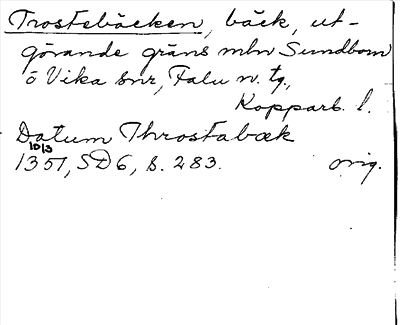 Trostebäcken, bäck, ut-
görande gräns mln Sundborn
o Vika snr, Falu n. tg.,
Kopparb. l.
Datum Throstabæk
10/3
1351, SD 6, s. 283. orig.